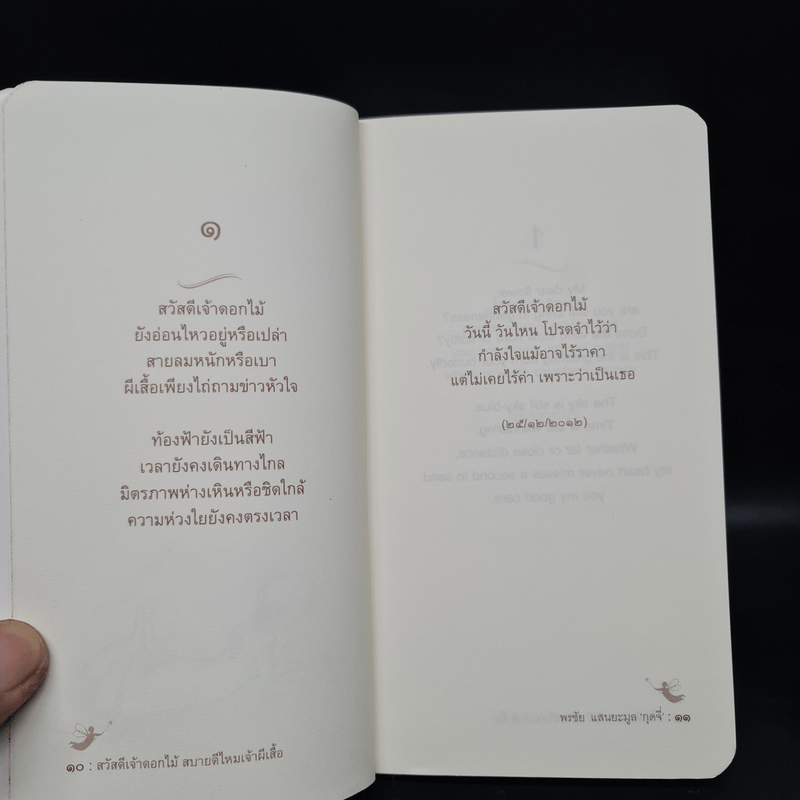 ๑
สวัสดีเจ้าดอกไม้
ยังอ่อนไหวอยู่หรือเปล่า
สายลมหนักหรือเบา
ผีเสื้อเพียงไถ่ถามข่าวหัวใจ
ท้องฟ้ายังเป็นสีฟ้า
เวลายังคงเดินทางไกล
มิตรภาพห่างเหินหรือชิดใกล้
ความห่วงใยยังคงตรงเวลา
๑๐ : สวัสดีเจ้าดอกไม้ สบายดีไหมเจ้าผีเสื้อ
สวัสดีเจ้าดอกไม้
วันนี้ วันไหน โปรดจำไว้ว่า
กำลังใจแม้อาจไร้ราคา
แต่ไม่เคยไร้ค่า เพราะว่าเป็นเธอ
(๒๕/๑๒/๒๐๑๒)
1
My dear flower
are you
The sky is still sky-blue
Whether far or close distance,
my heart never misses a second to send
you my good care.
พรชัย แสนยะมูล 'กุดจี่' : ๑๑